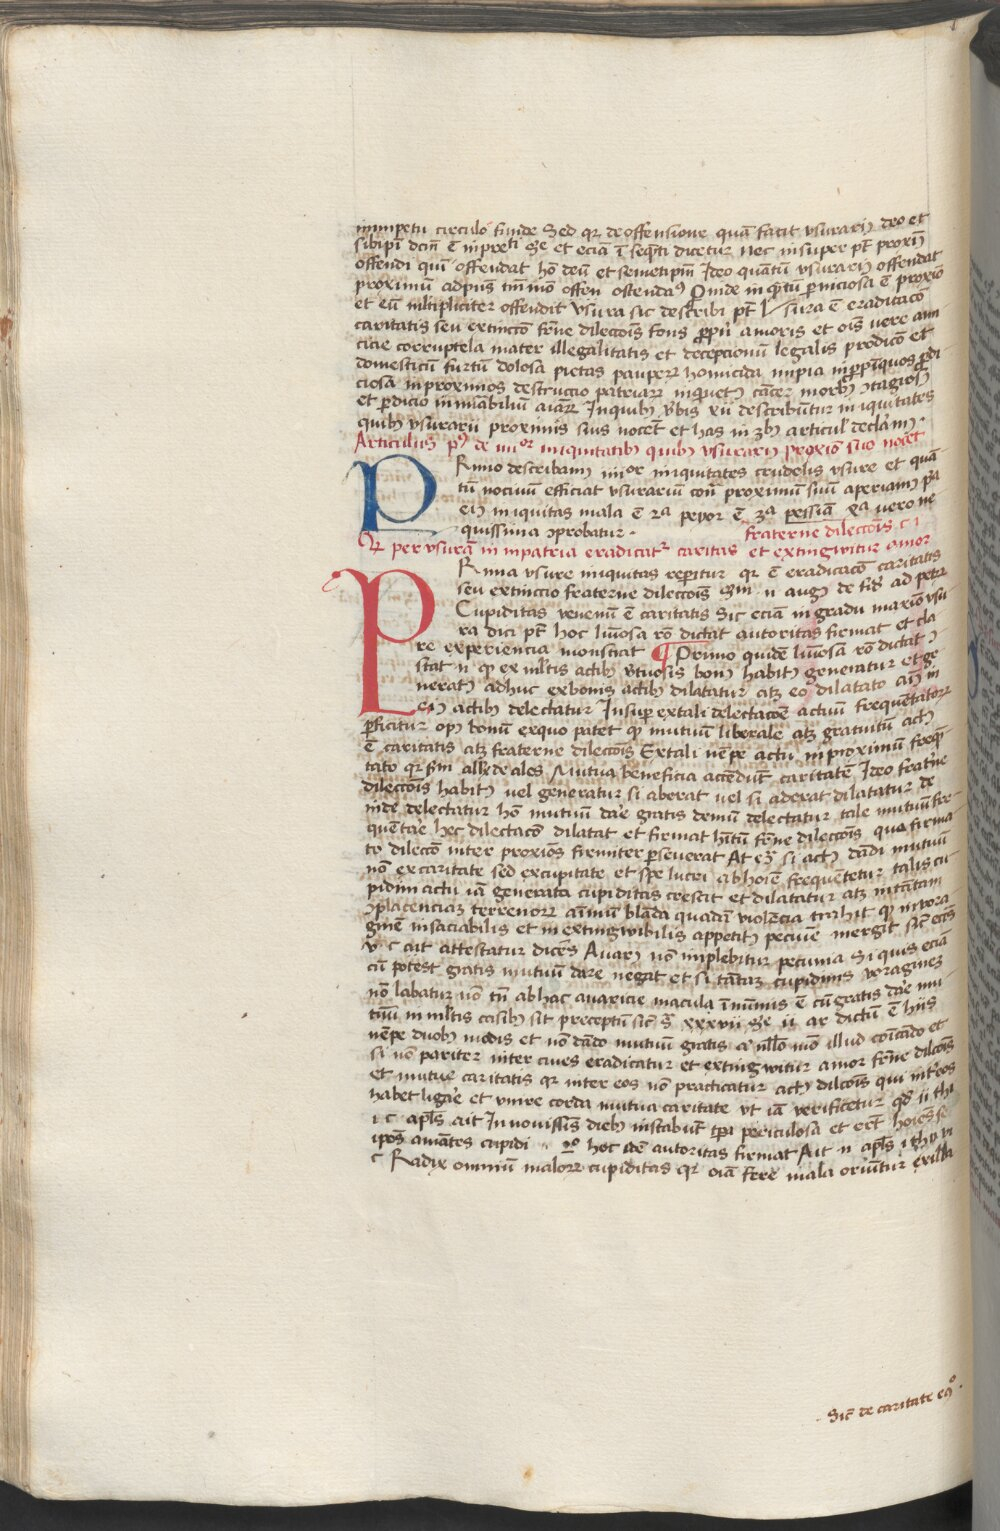 inimpetu circulo funde Sed qr de offensione quā facit vsurariꝰ deo et
sibipī dcm̄ ē et eciā ī seqn̄ti dicetur nec insuper pt̄ proxīm
offendi quī offendat hō deū et semetipm̄ Ideo quantū vsurariꝰ offendat
proximum adpn̄s ostendaꝰ Proinde inqꝫtū perniciosa ē proxīo
et eū ml̄tipliciter offendit vsura sic describi pt̄ Usura ē eradicacō
caritatis seu extinctō frn̄e dilectōīs fons ꝓpī amoris et oīs vere ami
cicie corruptela mater illegalitatis et decepcionū legalis prodicō et
domesticū furtū dolosa pietas pauperꝝ homicida impia in ꝓpīquos ꝑdi
ciosa inproximos destruccio patriarꝝ inquietꝰ cācer morbꝰ ↄtagiosꝰ
et ꝑdicio inmabiliū aīarꝝ Inquibꝰ v̄bis xii describūtur iniquitates
quibꝰ vsurarii proximis suis nocēt et has in 3bꝰ articul' declamꝰ
Articulus pꝰ de iiiior iniquitatibꝰ quibꝰ vsurariꝰ proxīo suo nocet
PRimo describamꝰ iiiior iniquitates crudelis vsure et quā
tū nociuū efficiat vsurariū con̄ proximū suū aperiamꝰ pa
eiꝰ iniquitas mala ē 2a peyor ē 3a pessīā 4a vero ne
quissima ↄprobatur
fraterne dilectōīs c 1
Qr per vsurā in inpatria eradicatr caritas et extingwitur amor
PRima vsure iniquitas reperitur qr ē eradicacō caritatis
seu extinctio fraterne dilectōīs n augꝰ de fid' ad petꝝ
Cupiditas venenū ē caritatis Sic eciā in gradu maxīo vsu
ra dici pt̄ hoc līuosa rō dictat autoritas firmat et cla
re experiencia monstrat ¶ Primo quidē līuosa rō dictat ↄ
stat n qꝫ ex ml̄tis actibꝰ v̄tuosis bonꝰ habitꝰ generatur et ge
neratꝰ adhuc exbonis actibꝰ dilatatur atqꝫ eo dilatato aīꝰ in
eiꝰ actibꝰ delectatur Insuꝑ extali delectacōē actuū frequētatorꝝ
ꝑficitur opꝰ bonū exquo patet qꝫ mutuū liberale atqꝫ gratuitū actꝰ
ē caritatis atqꝫ fraterne dilectōīs Extali nēpe actu inproximū freqꝫ
tato qr sm̄ allꝫ de ales Mutua beneficia accendūt caritatē Ideo frat̄ne
dilectōīs habitꝰ uel generatur si aberat uel si aderat dilatatur de
inde delectatur hō mutuū da'e gratis demū delectatur tale mutuū fre
quētae hec dilectacō dilatat et firmat h̄itū frn̄e dilectōīs qua firma
to dilectō inter proxīos firmiter ꝑseuerat At eꝯ si actꝰ dādi mutuū
nō excaritate sed excupitate et spe lucri abhoīe frequētetur talis cu
pidini actu iā generata cupiditas crescit et dilatatur atqꝫ intātam
ↄplacenciaꝫ terrenorꝝ aīmū blāda quadā violēcia trahit qꝫ invora
ginē insaciabilis et in extingwibilis appetitꝰ pecuīe mergit sic̄ ecēs
v c ait attestatur dicēs Auarꝰ nō implebitur petunia Si quis eciā
cū potest gratis mutuū dare negat et si tātaꝫ cupidinis voraginez
nō labatur nō tn̄ abhac auaricie macula īmunis ē cū gratis da'e mu
tuū in ml̄tis casibꝰ sit preceptū sic̄ xxxvii ii ar dictū ē hiis
nēpe duobꝰ modis et nō dādo mutuū gratis a nll̄o mō illud cōicādo et
si nō pariter inter ciues eradicatur et extingwitur amor frn̄e dilcōīs
et mutue caritatis qr inter eos nō practicatur actꝰ dilcōīs qui int̄eos
habet liga'e et vnire corda mutua caritate vt iā verificetur qd' ii thi
i c apl̄s ait In nouissīs diebꝰ instabūt tꝑa periculosa et eert̄ hoīes se
ipōs amātes cupidi 2o hoc idē autoritas firmat Ait n apl̄s i thi vi
c Radix omniū malorꝝ cupiditas qr oīa fere mala oriūtur exilla
Sic̄ de caritate eqo